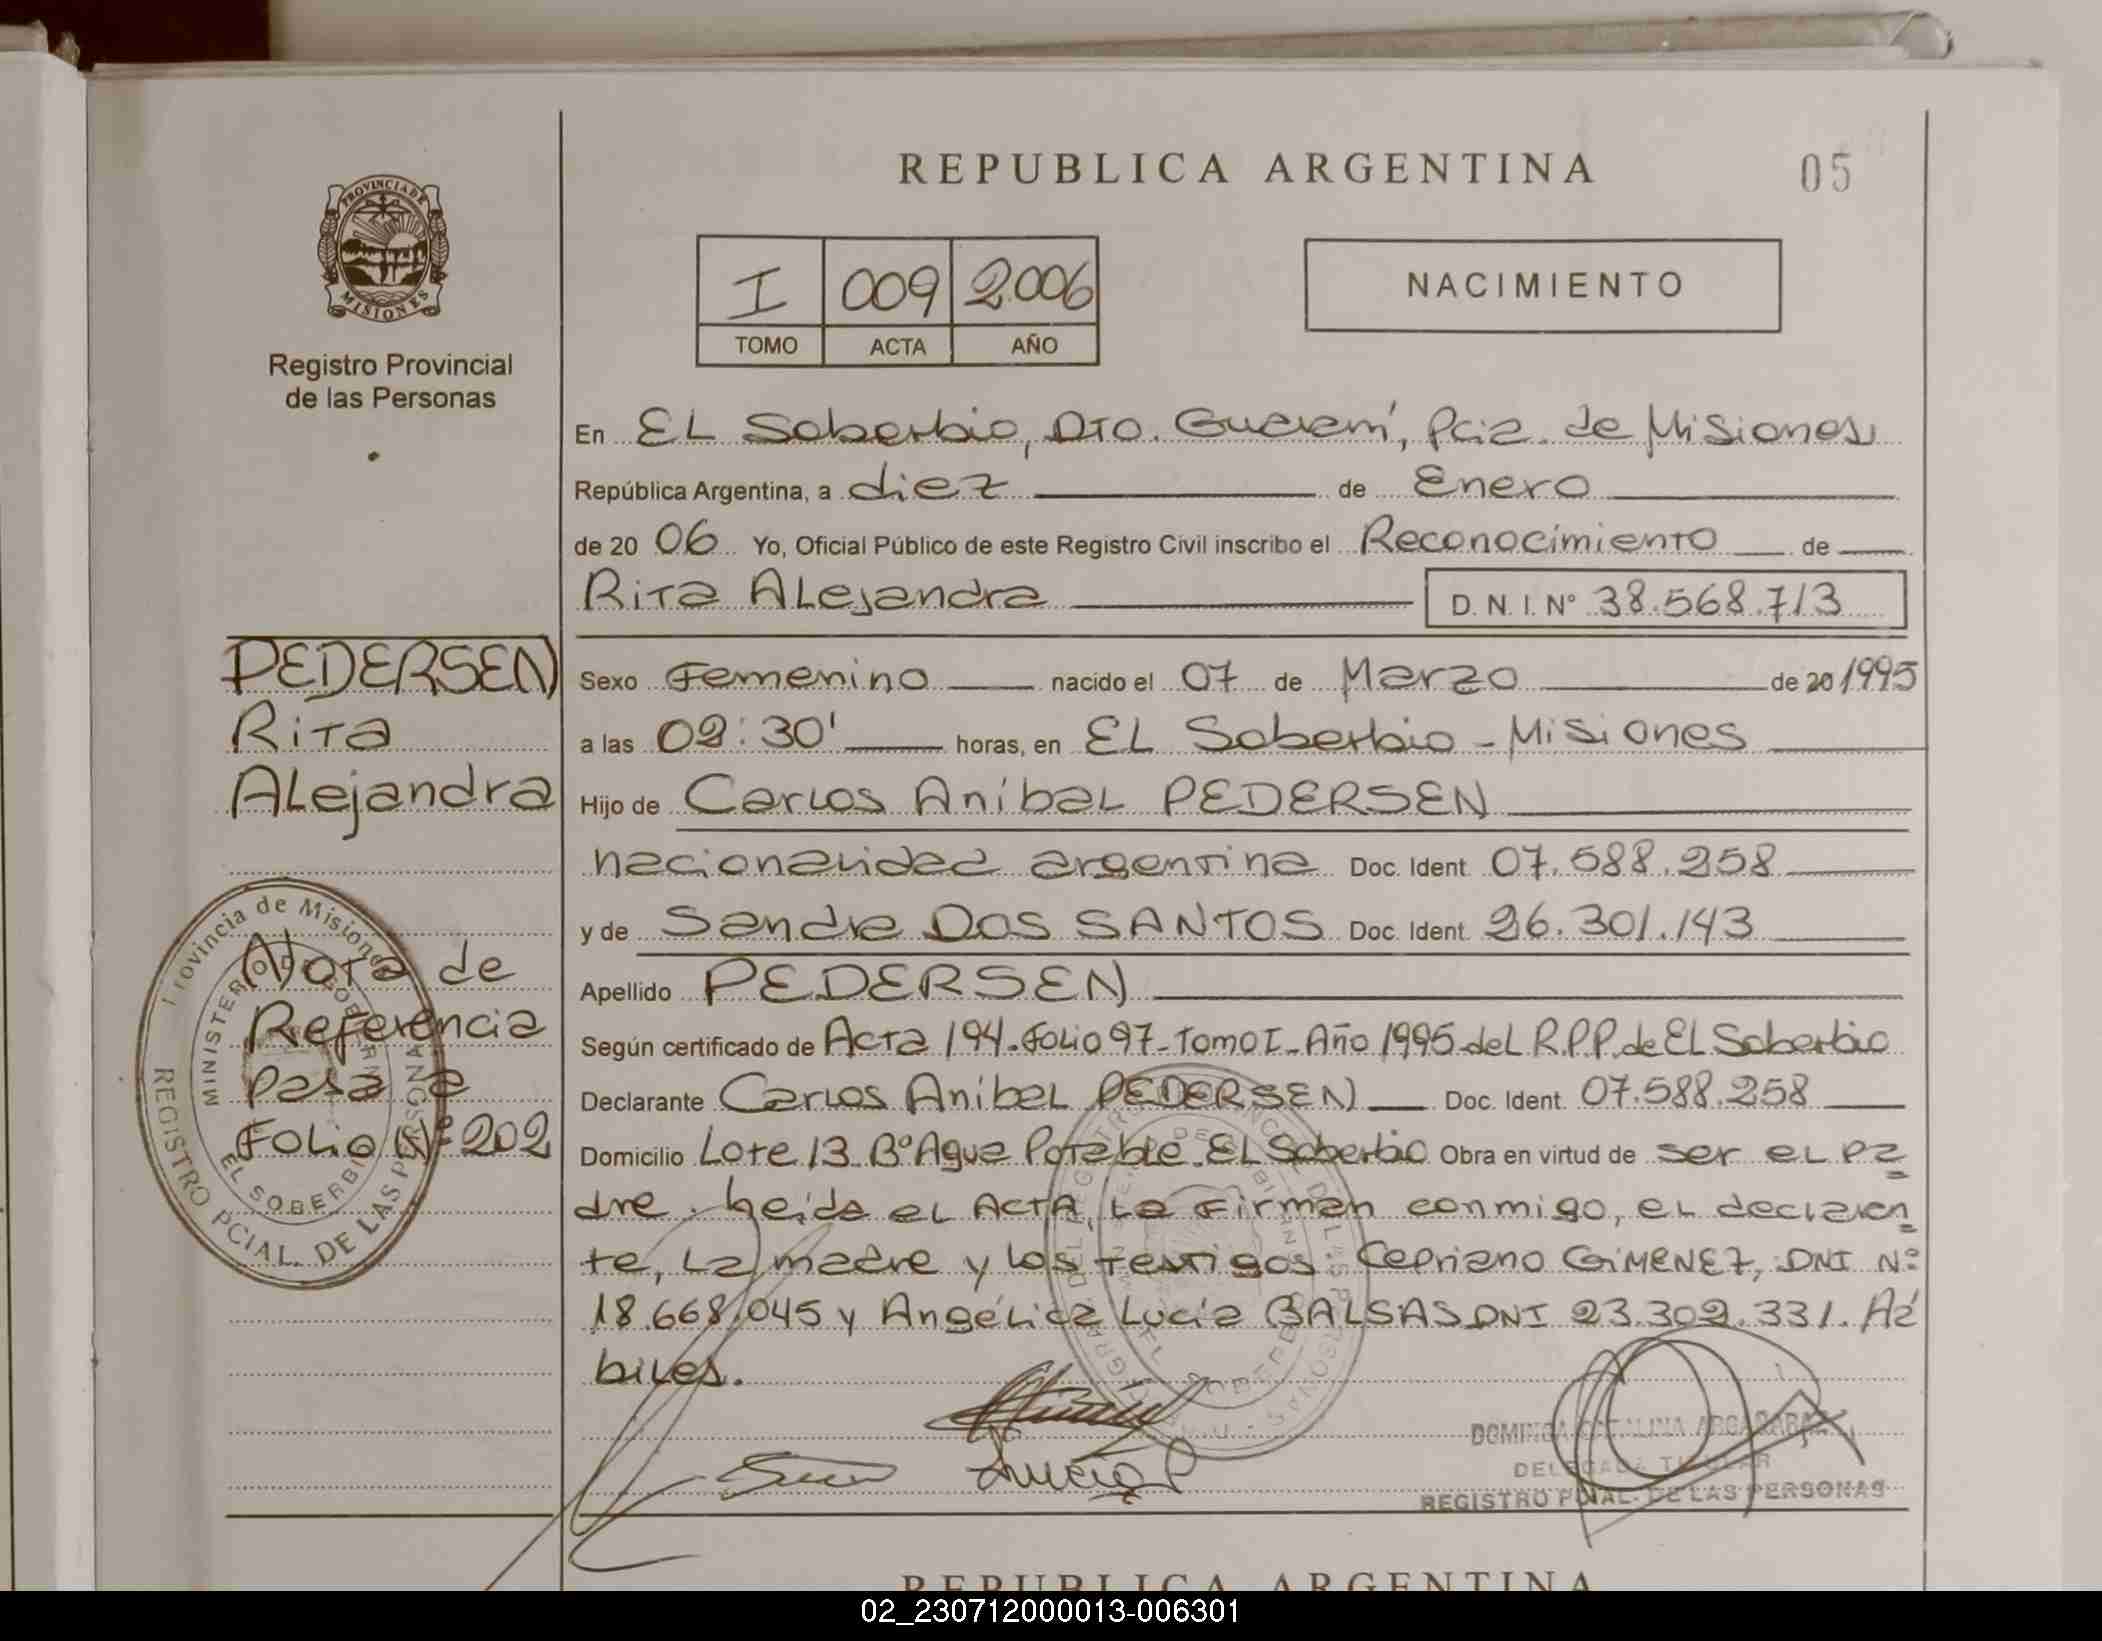 REPUBLICA ARGENTINA
05
PROVINCIA DE
MISIONES
Registro Provincial
de las Personas
I 009 2.006
TOMO ACTA AÑO
NACIMIENTO
En EL Soberbio, Dto. Guaraní, Pcia. de Misiones
República Argentina, a diez de Enero
de 20 06 Yo, Oficial Público de este Registro Civil inscribo el Reconocimiento de
Rita Alejandra D. N. I. Nº 38.568.713
PEDERSEN
Rita
Alejandra
Sexo Femenino nacido el 07 de Marzo de 20 1995
a las 02:30' horas, en EL Soberbio - Misiones
Hijo de Carlos Aníbal PEDERSEN
nacionalidad argentina Doc. Ident. 07.588.258
y de Sandra DOS SANTOS Doc. Ident. 26.301.143
Apellido PEDERSEN
Según certificado de Acta 194-Folio 97-Tomo I-Año 1995 del R.P.P. de El Soberbio
Declarante Carlos Aníbal PEDERSEN Doc. Ident. 07.588.258
Domicilio Lote 13 Bº Agua Potable. El Soberbio Obra en virtud de ser el pa
dre. Leida el ACTA, la firman conmigo, el declaran
te, la madre y los testigos Cepriano GIMENEZ, DNI Nº
18.668.045 y Angélica Lucía BALSAS DNI 23.302.331. Há
biles.
Nota de
Referencia
pasa a
Folio Nº 202
Provincia de Misiones
MINISTERIO DE GOBIERNO
EL SOBERBIO
REGISTRO PCIAL. DE LAS PERSONAS
DOMINGA CATALINA
DELEGADA TITULAR
REGISTRO PCIAL. DE LAS PERSONAS
REPUBLICA ARGENTINA
02_230712000013-006301